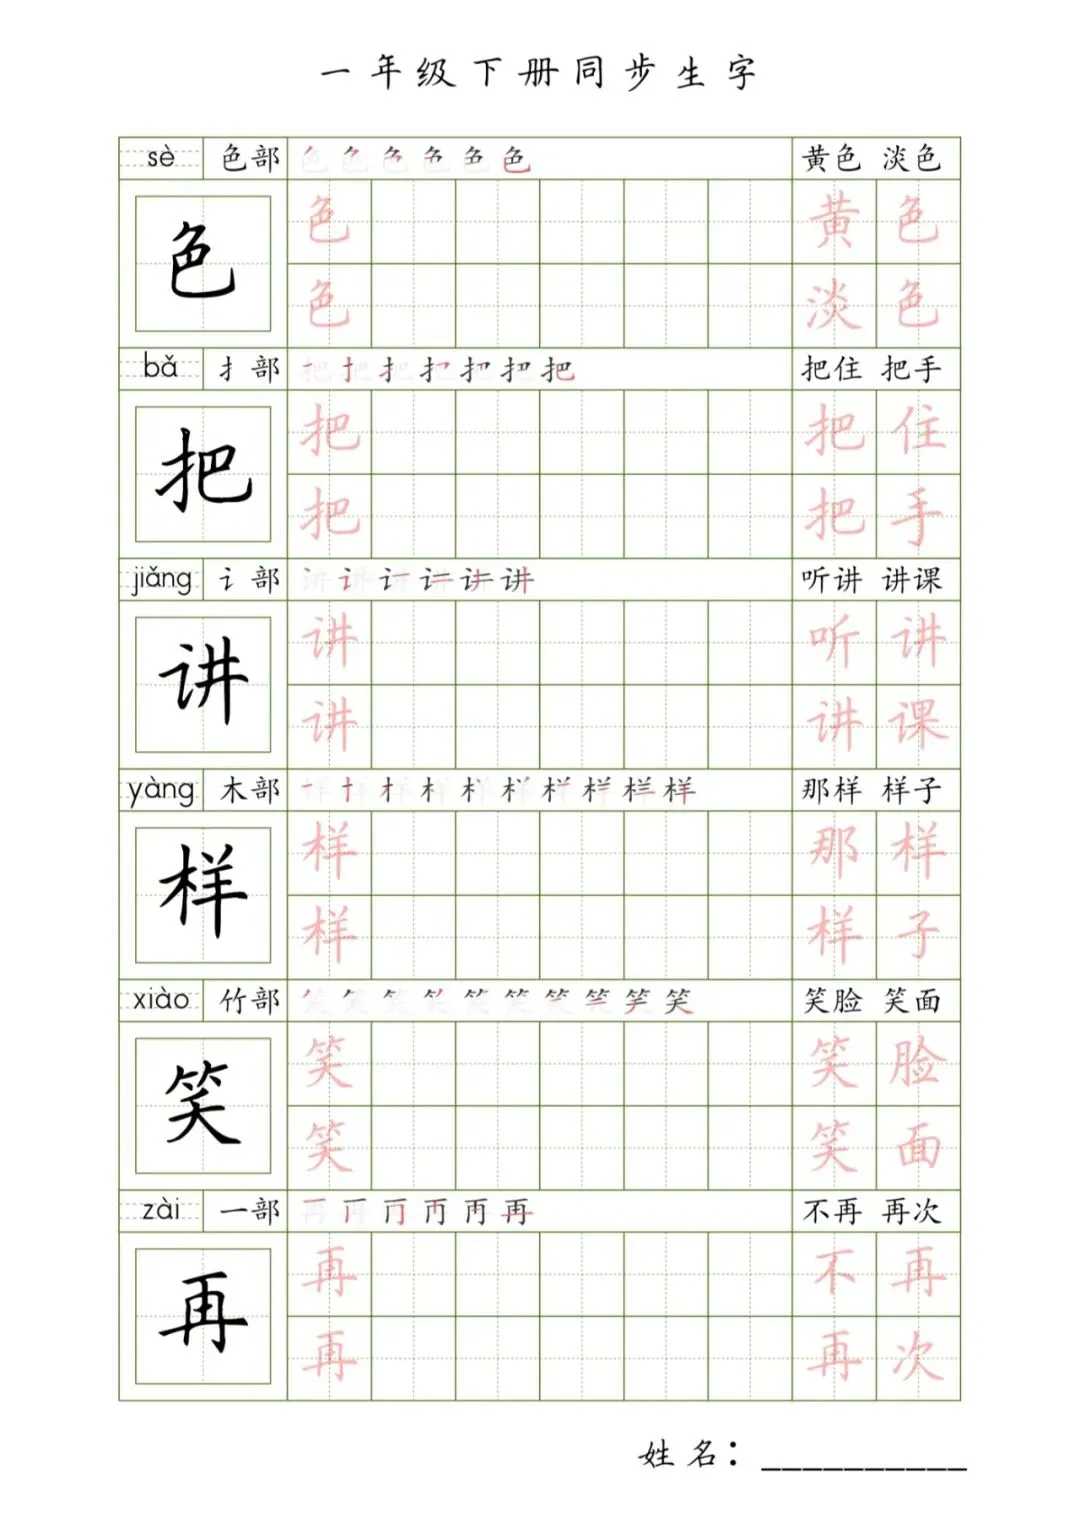 一年级下册同步生字
sè 色部 色 色 色 色 色 色 黄色 淡色
色 色 黄色
色 淡色
bǎ 扌部 把 把 把 把 把 把 把 把住 把手
把 把 把住
把 把手
jiǎng 讠部 讲 讲 讲 讲 讲 讲 听讲 讲课
讲 讲 听讲
讲 讲课
yàng 木部 样 样 样 样 样 样 样 样 样 样 那样 样子
样 样 那样
样 样子
xiào 竹部 笑 笑 笑 笑 笑 笑 笑 笑 笑 笑 笑脸 笑面
笑 笑 笑脸
笑 笑面
zài 一部 再 再 再 再 再 再 不再 再次
再 再 不再
再 再次
姓名：__________